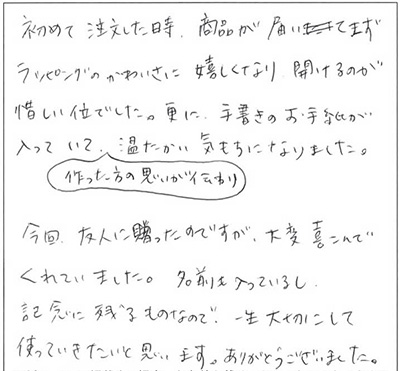 初めて注文した時、商品が届いてまず
ラッピングのかわいさに嬉しくなり、開けるのが
惜しい位でした。更に、手書きのお手紙が
入っていて、温たかい気もちになりました。
作った方の思いが伝わり
今回、友人に贈ったのですが、大変喜こんで
くれていました。名前も入っているし、
記念に残るものなので、一生大切にして
使っていきたいと思います。ありがとうございました。